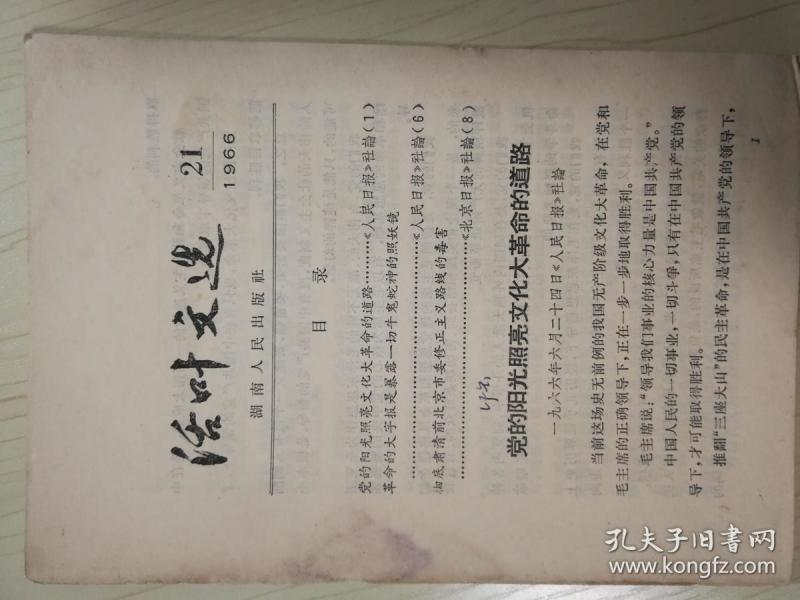 活叶文选
21
1966
湖南人民出版社
目录
党的阳光照亮文化大革命的道路……《人民日报》社論(1)
革命的大字报是暴露一切牛鬼蛇神的照妖镜
……《人民日报》社論(6)
彻底肃清前北京市委修正主义路线的毒害
……《北京日报》社論(8)
党的阳光照亮文化大革命的道路
一九六六年六月二十四日《人民日报》社論
当前这场史无前例的我国无产阶级文化大革命，在党和
毛主席的正确领导下，正在一步一步地取得胜利。
毛主席说：“领导我们事业的核心力量是中国共产党。”
中国人民的一切事业，一切斗爭，只有在中国共产党的领
导下，才可能取得胜利。
推翻“三座大山”的民主革命，是在中国共产党的领导下，
1
孔夫子旧书网
www.kongfz.com